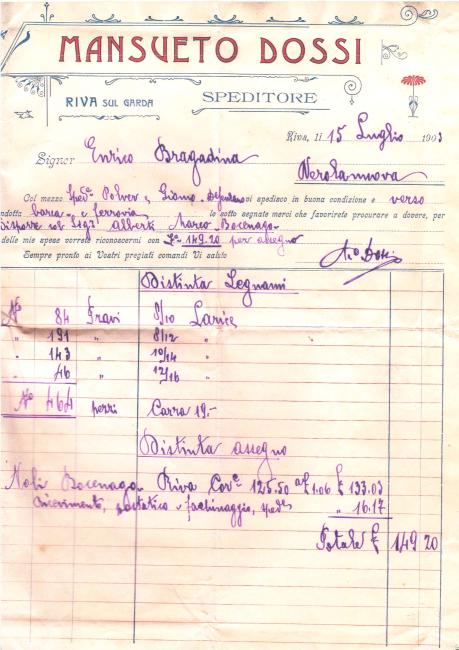 MANSUETO DOSSI
RIVA SUL GARDA
SPEDITORE
Riva, li 15 Luglio 1903
Signor Enrico Bragadina
Verolanuova
Col mezzo Sped.e Polver, Giomo, vi spedisco in buona condizione e verso
condotta barca e ferrovia le sotto segnate merci che favorirete procurare a dovere, per
disporre sol Sigr Alberti Marco Bocenago
delle mie spese vorrete riconoscermi con L. 149.20 per assegno
Sempre pronto ai Vostri pregiati comandi Vi saluto
Dossi
Distinta Legnami
No 84 Travi 8/10 Larice
" 191 " 8/12 "
" 143 " 10/14 "
" 46 " 12/16 "
No 464 pezzi Carra 19.-
Distinta assegno
Noli Bocenago Riva Cor.e 125.50 a £ 1.06 £ 133.03
Ricevimento, postatico e fachinaggio, sped.e " 16.17
Totale £ 149 20